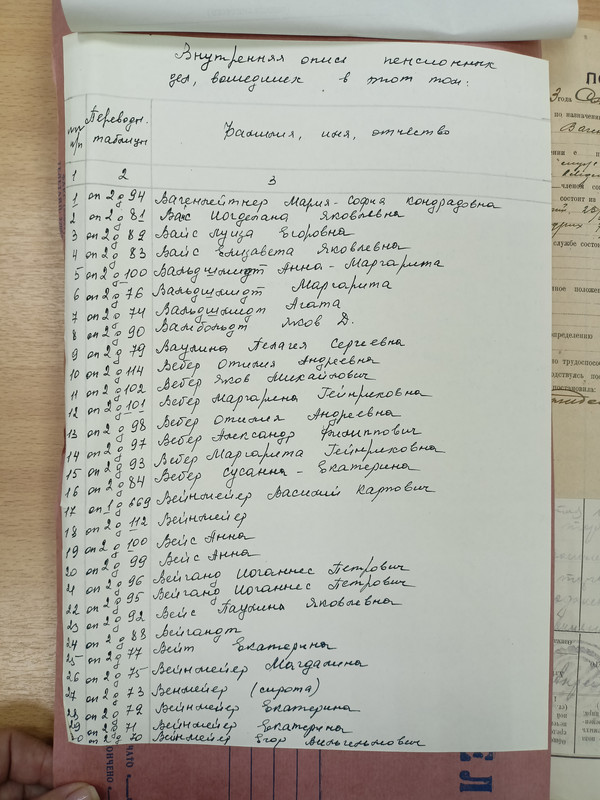 Внутренняя опись пенсионных
дел, вошедших в этот том:
№№ п/п Переводн. таблицы Фамилия, имя, отчество
1 2 3
1 оп 2 д 94 Вагенлейтнер Мария-София Кондрадовна
2 оп 2 д 81 Вакс Иогдепана Яковлевна
3 оп 2 д 89 Вайс Луиза Егоровна
4 оп 2 д 83 Вайс Елизавета Яковлевна
5 оп 2 д 100 Вальдшмидт Анна-Маргарита
6 оп 2 д 76 Вальдшмидт Маргарита
7 оп 2 д 74 Вальдшмидт Агата
8 оп 2 д 90 Вамбольдт Яков Д.
9 оп 2 д 79 Ваулина Пелагия Сергеевна
10 оп 2 д 114 Вебер Отилия Андреевна
11 оп 2 д 102 Вебер Яков Михайлович
12 оп 2 д 101 Вебер Маргарита Гейнриховна
13 оп 2 д 98 Вебер Отилия Андреевна
14 оп 2 д 97 Вебер Александр Филиппович
15 оп 2 д 93 Вебер Маргарита Гейнриховна
16 оп 2 д 84 Вебер Сусанна-Екатерина
17 оп 1 д 669 Вейнмейер Василий Карлович
18 оп 2 д 112 Вейнмейер
19 оп 2 д 100 Вейс Анна
20 оп 2 д 99 Вейс Анна
21 оп 2 д 96 Вейганд Иоганнес Петрович
22 оп 2 д 95 Вейганд Иоганнес Петрович
23 оп 2 д 92 Вейс Паулина Яковлевна
24 оп 2 д 88 Вейгандт
25 оп 2 д 77 Вейт Екатерина
26 оп 2 д 75 Вейнмейер Магдалина
27 оп 2 д 73 Венмейер (сирота)
28 оп 2 д 72 Вейнмейер Екатерина
29 оп 2 д 71 Вейнмейер Екатерина
30 оп 2 д 70 Вейнмейер Егор Вильгельмович